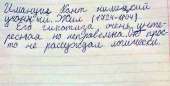 Имануил Кант немецкий
уч Жил (1724-1804).
Его гипотиза очень инте-
ресная но неправельная. Он прос-
то не расуждал логически.